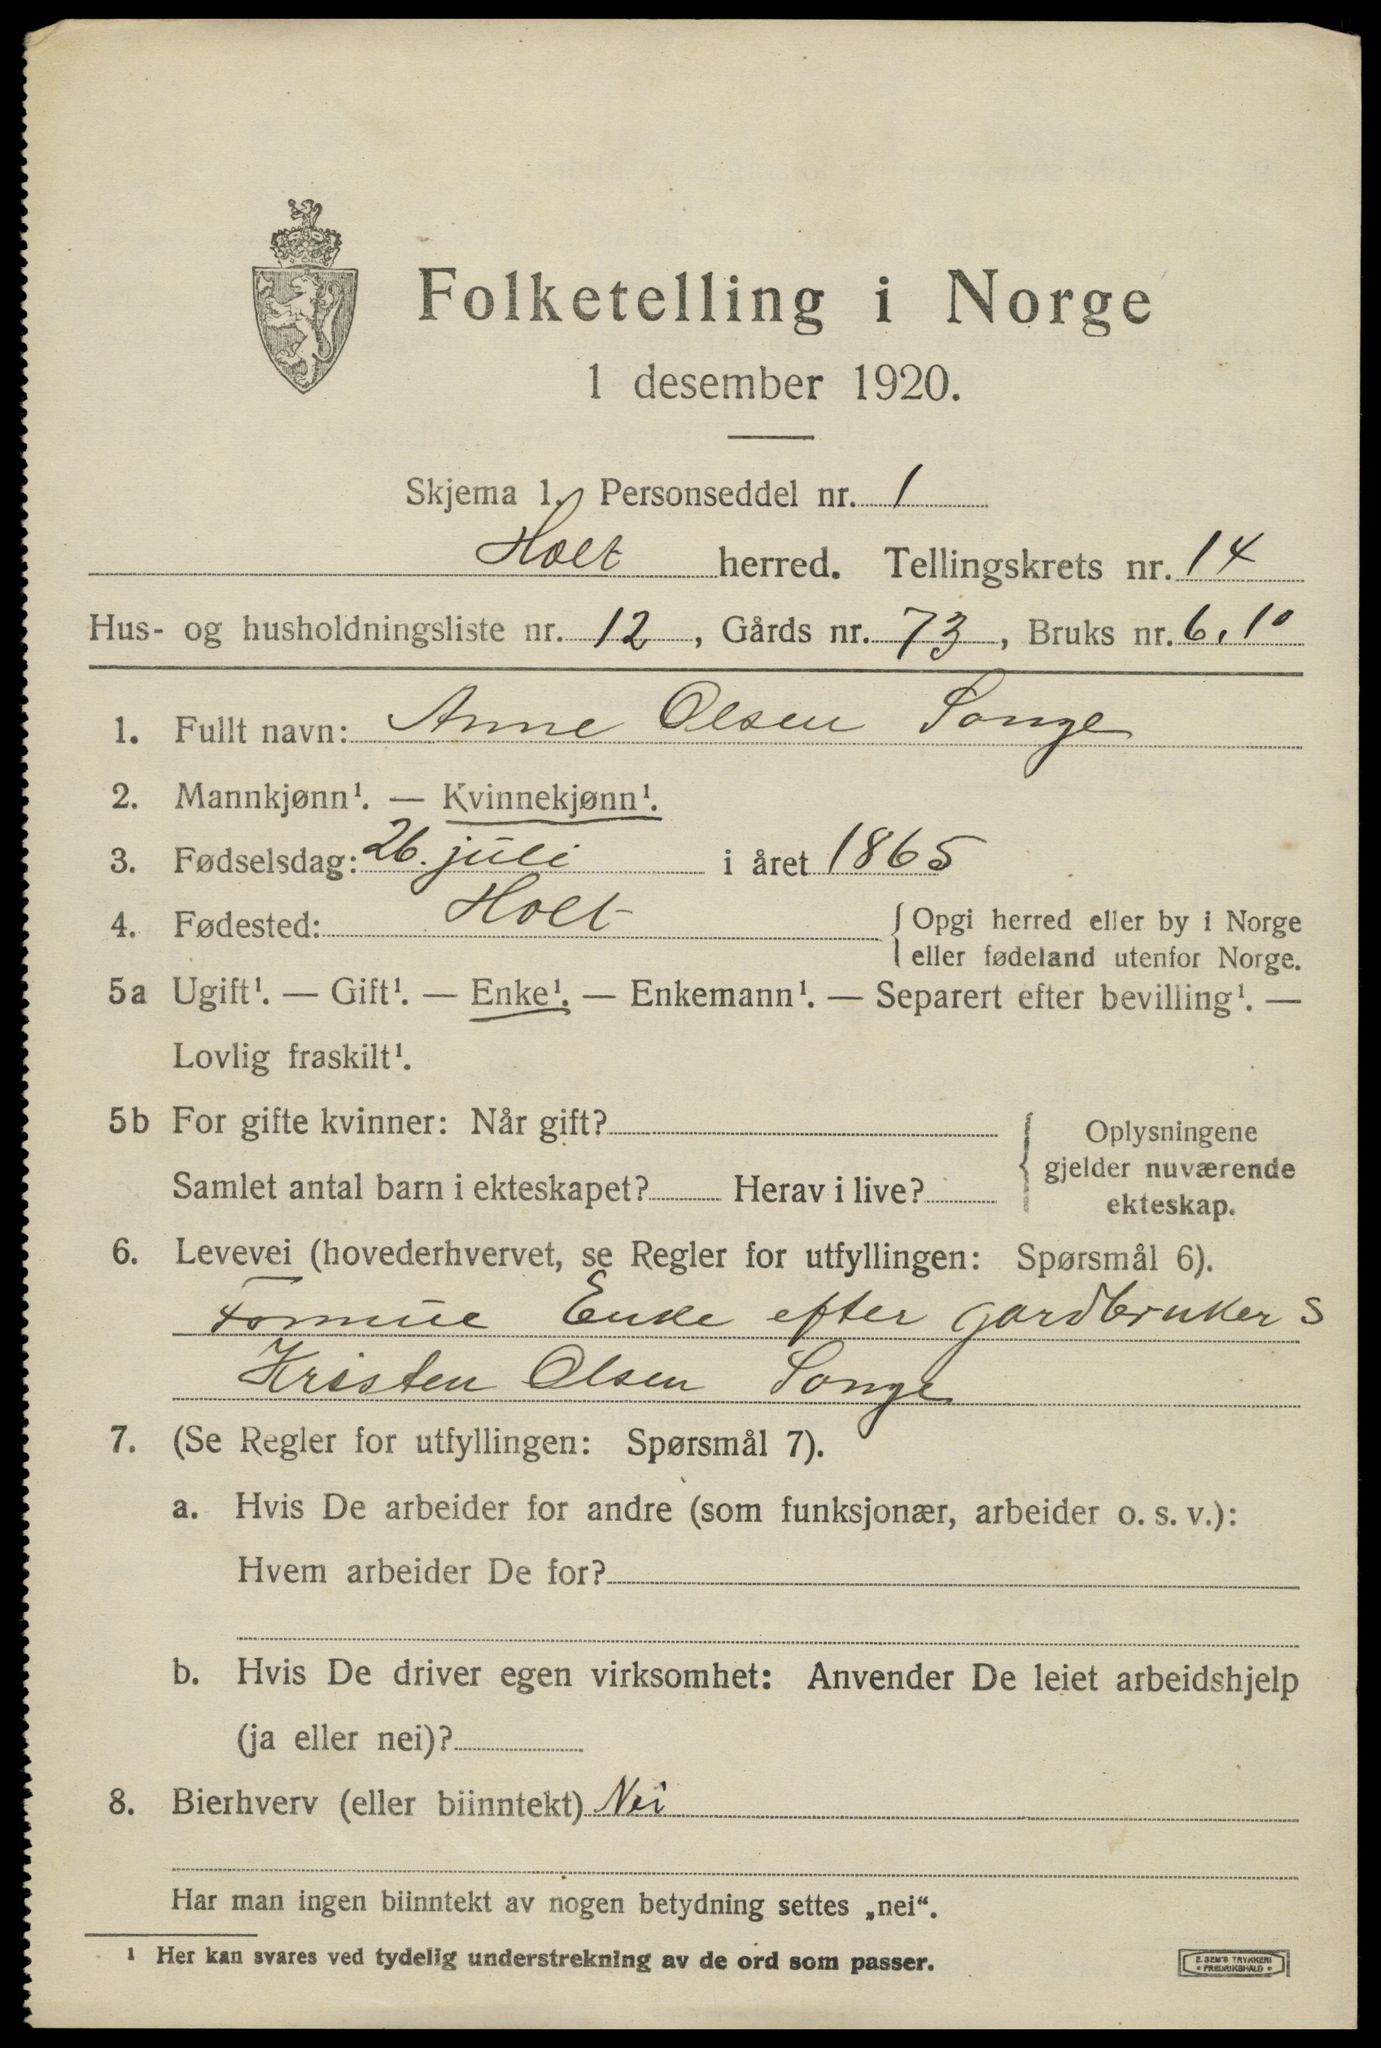 Folketelling i Norge
1 desember 1920.
Skjema 1. Personseddel nr. 1
Holt herred. Tellingskrets nr. 14
Hus- og husholdningsliste nr. 12, Gårds nr. 73, Bruks nr. 6,10
1. Fullt navn: Anne Olsen Songe
2. Mannkjønn¹. — Kvinnekjønn¹.
3. Fødselsdag: 26. juli i året 1865
4. Fødested: Holt { Opgi herred eller by i Norge
eller fødeland utenfor Norge.
5a Ugift¹. — Gift¹. — Enke¹. — Enkemann¹. — Separert efter bevilling¹. —
Lovlig fraskilt¹.
5b For gifte kvinner: Når gift?
Samlet antal barn i ekteskapet? Herav i live?
{ Oplysningene
gjelder nuværende
ekteskap.
6. Levevei (hovederhvervet, se Regler for utfyllingen: Spørsmål 6).
Formue Enke efter gardbruker s
Kristen Olsen Songe
7. (Se Regler for utfyllingen: Spørsmål 7).
a. Hvis De arbeider for andre (som funksjonær, arbeider o. s. v.):
Hvem arbeider De for?
b. Hvis De driver egen virksomhet: Anvender De leiet arbeidshjelp
(ja eller nei)?
8. Bierhverv (eller biinntekt) Nei
Har man ingen biinntekt av nogen betydning settes „nei“.
¹ Her kan svares ved tydelig understrekning av de ord som passer.
E. SEM'S TRYKKERI
• FREDRIKSHALD •